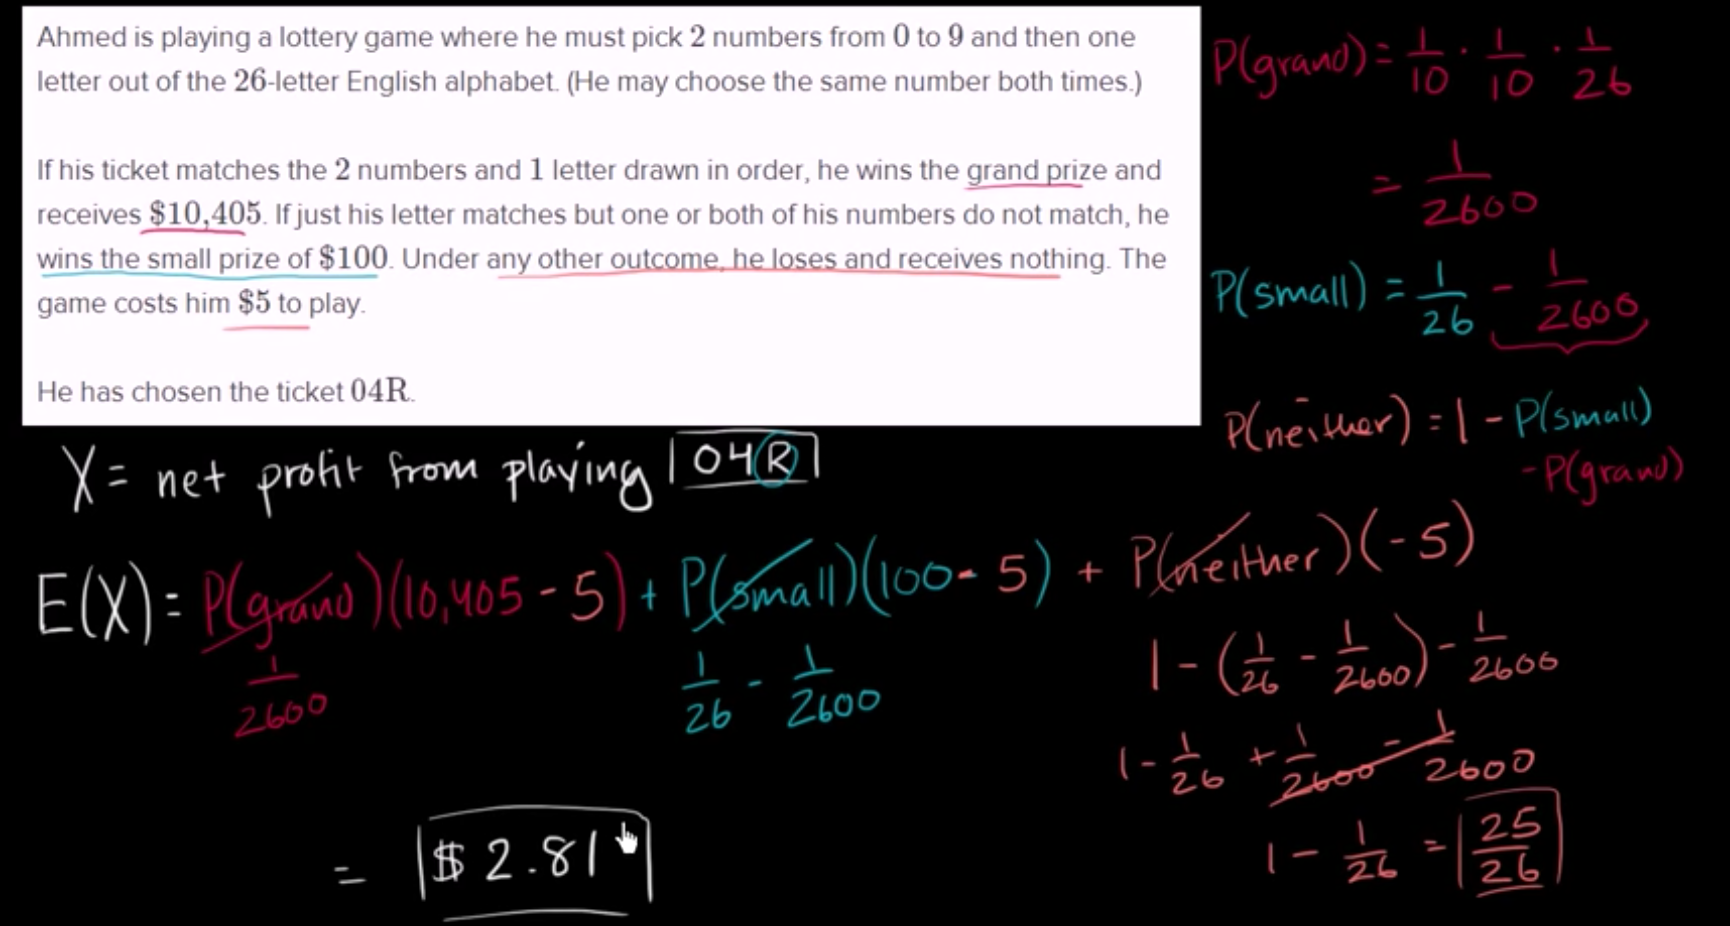 Ahmed is playing a lottery game where he must pick 2 numbers from 0 to 9 and then one
letter out of the 26-letter English alphabet. (He may choose the same number both times.)
If his ticket matches the 2 numbers and 1 letter drawn in order, he wins the grand prize and
receives $10,405. If just his letter matches but one or both of his numbers do not match, he
wins the small prize of $100. Under any other outcome, he loses and receives nothing. The
game costs him $5 to play.
He has chosen the ticket 04R.
P(grand) = 1/10 · 1/10 · 1/26
= 1/2600
P(small) = 1/26 - 1/2600
P(neither) = 1 - P(small)
- P(grand)
X = net profit from playing 04R
E(X) = P(grand)(10,405 - 5) + P(small)(100 - 5) + P(neither)(-5)
1/2600 1/26 - 1/2600 1 - (1/26 - 1/2600) - 1/2600
1 - 1/26 + 1/2600 - 1/2600
1 - 1/26 = 25/26
= $2.81